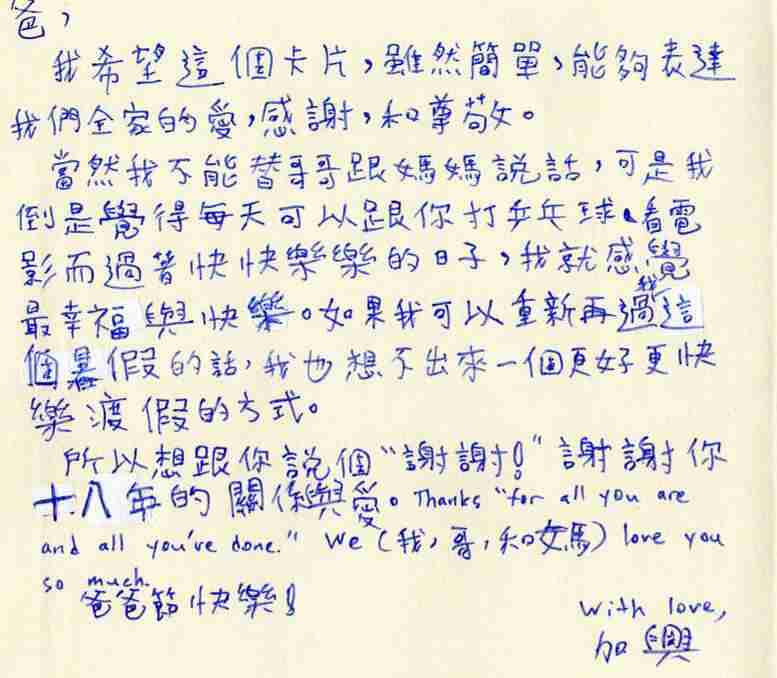 爸，
我希望這個卡片，雖然簡單，能夠表達
我們全家的愛，感謝，和尊敬。
當然我不能替哥哥跟媽媽說話，可是我
倒是覺得每天可以跟你打乒乓球、看電
影而過著快快樂樂的日子，我就感覺
最幸福與快樂。如果我可以重新再過我這
個暑假的話，我也想不出來一個更好更快
樂渡假的方式。
所以想跟你說個“謝謝!” 謝謝你
十八年的關係與愛。Thanks "for all you are
and all you've done." We (我，哥，和媽) love you
so much.
爸爸節快樂!
With love,
加興